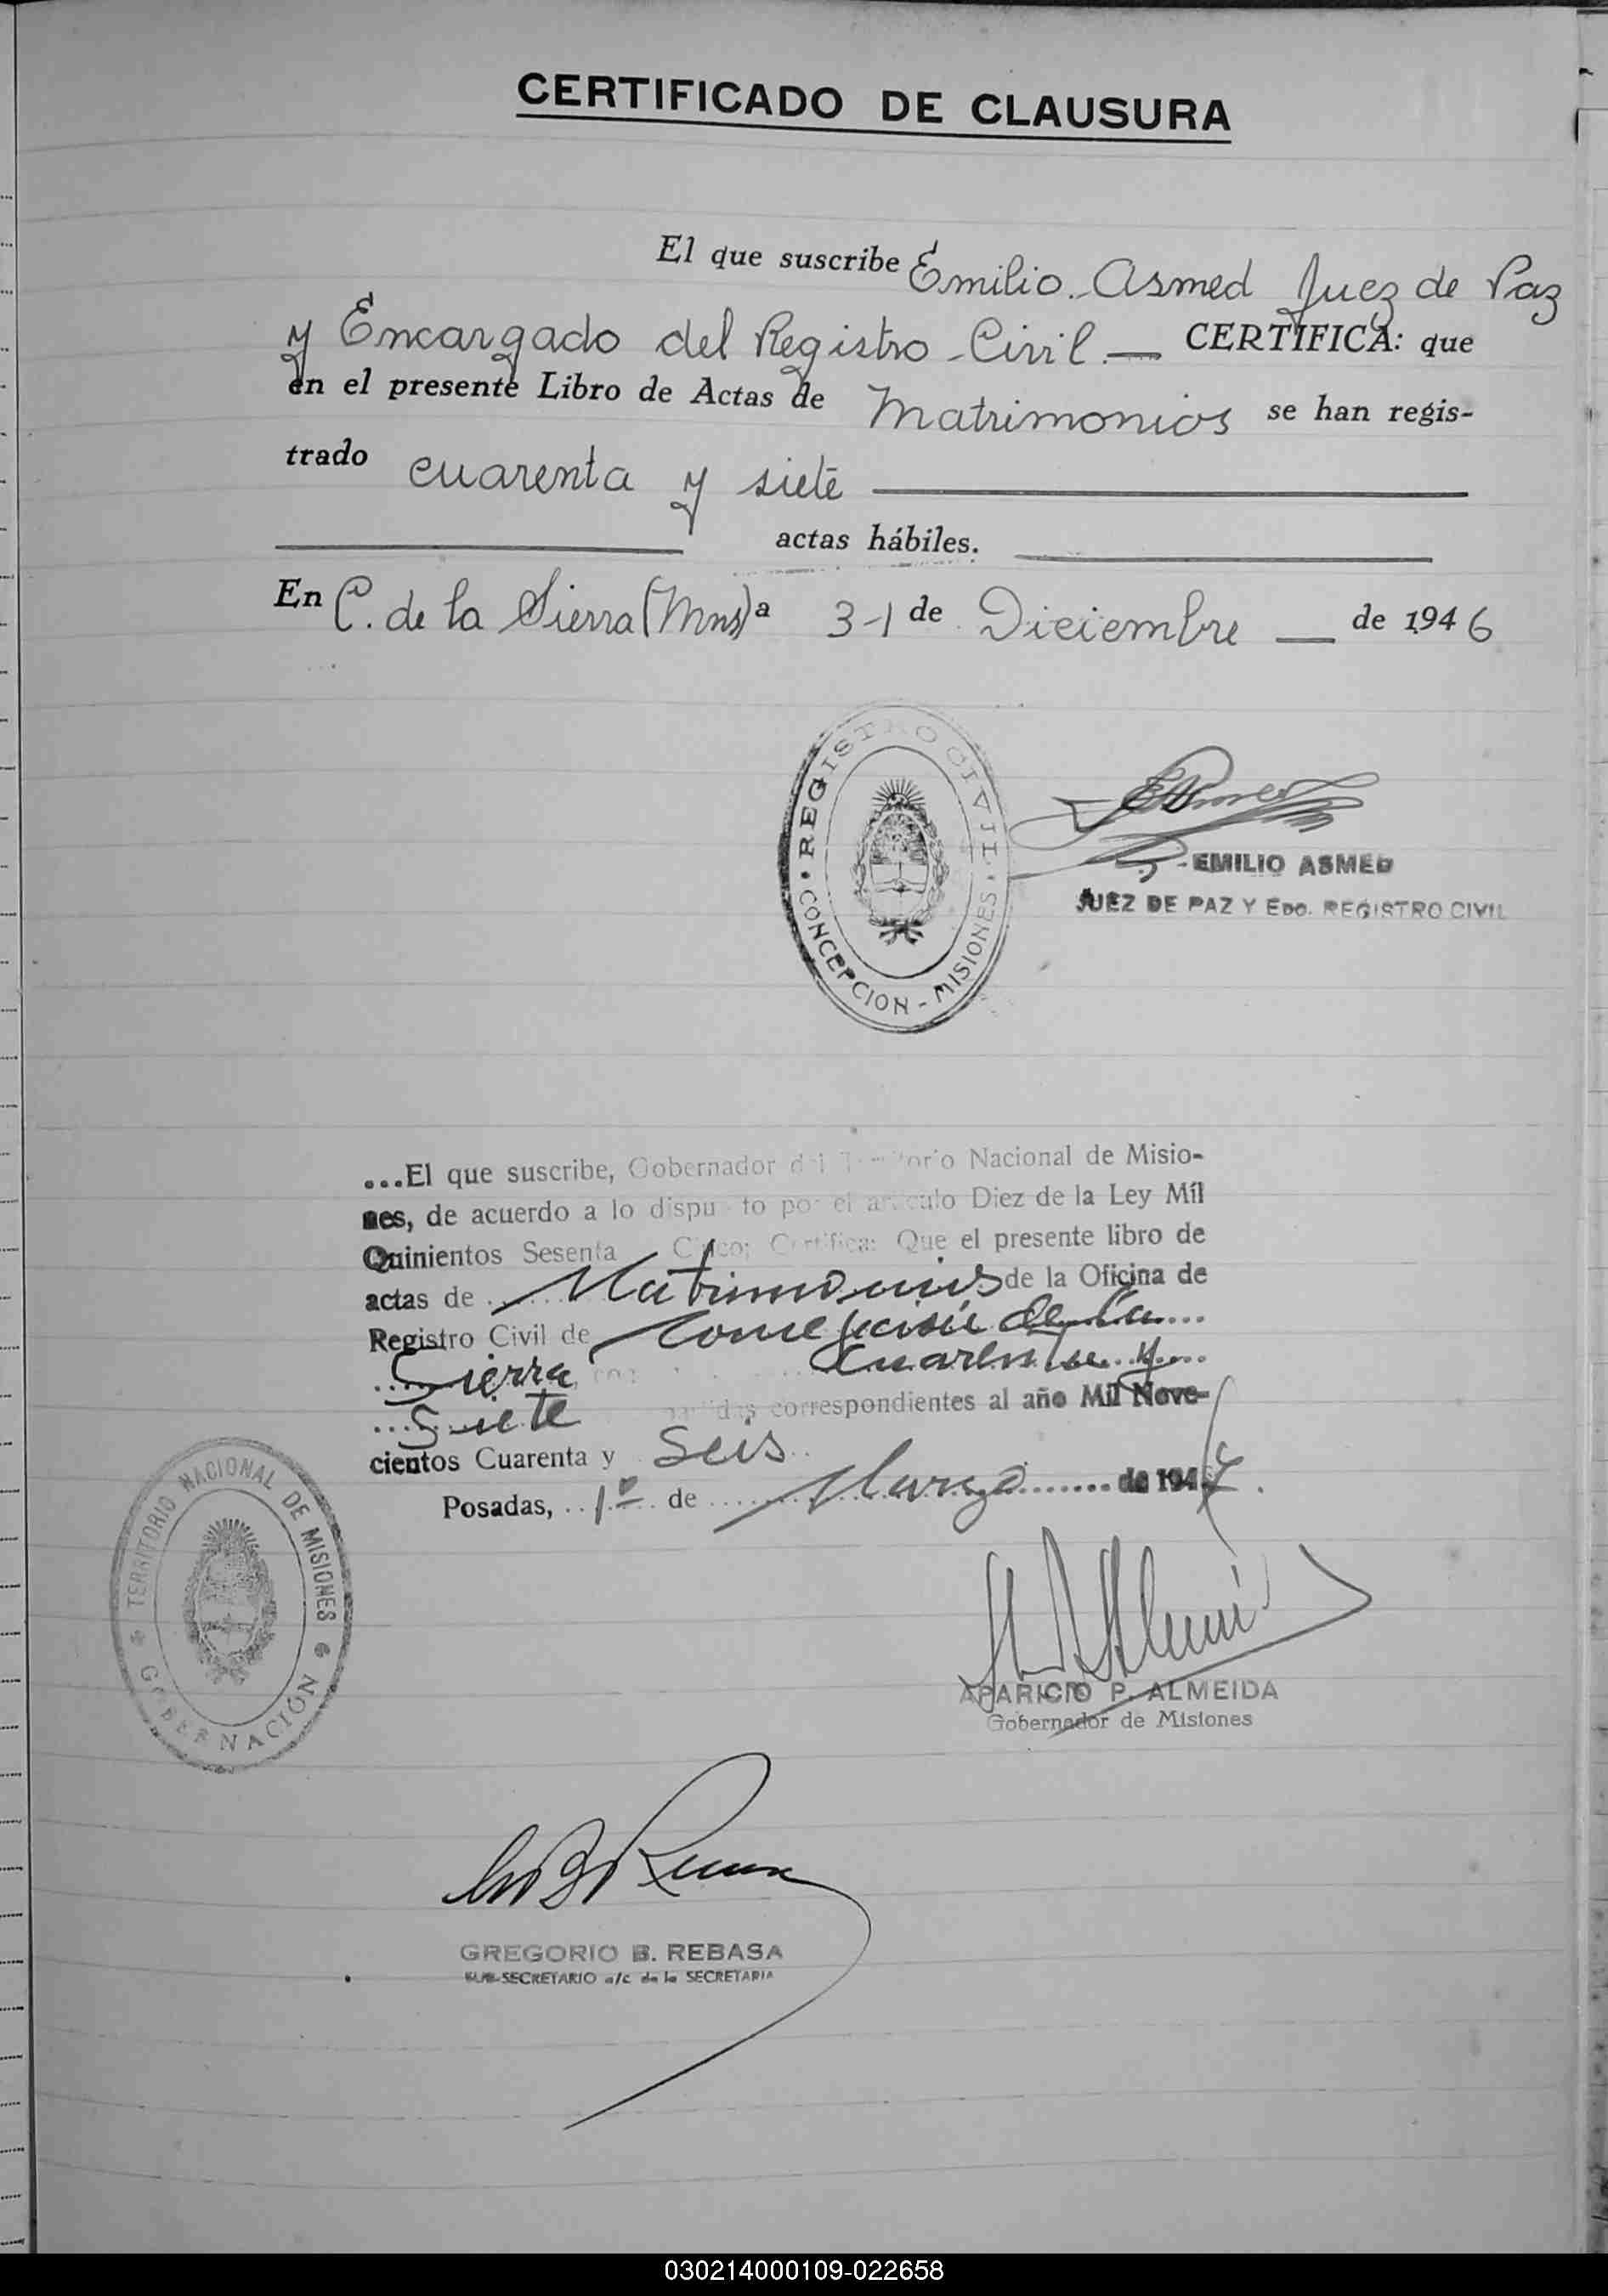 CERTIFICADO DE CLAUSURA
El que suscribe Emilio Asmed Juez de Paz
y Encargado del Registro Civil — CERTIFICA: que
en el presente Libro de Actas de Matrimonios se han regis-
trado cuarenta y siete
actas hábiles.
En C. de la Sierra (Mns) a 31 de Diciembre — de 1946
REGISTRO CIVIL
CONCEPCION - MISIONES
EMILIO ASMED
JUEZ DE PAZ Y EDO. REGISTRO CIVIL
...El que suscribe, Gobernador del Territorio Nacional de Misio-
nes, de acuerdo a lo dispuesto por el artículo Diez de la Ley Mil
Quinientos Sesenta Cinco; Certifica: Que el presente libro de
actas de Matrimonios de la Oficina de
Registro Civil de Concepción de la
Sierra, Cuarenta y
Siete partidas correspondientes al año Mil Nove-
cientos Cuarenta y Seis
Posadas, 1º de Marzo de 1947.
TERRITORIO NACIONAL DE MISIONES
GOBERNACIÓN
APARICIO P. ALMEIDA
Gobernador de Misiones
GREGORIO B. REBASA
SUB-SECRETARIO a/c de la SECRETARIA
030214000109-022658